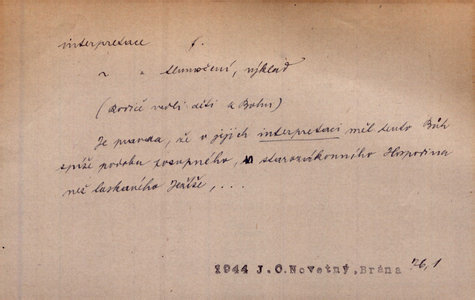 interpretace f.
" " tlumočení, výklad
(Rodiče vedli děti k Bohu)
Je pravda, že v jejich interpretaci měl tento Bůh
spíše podobu zosupného, starozákonního Hospodina
než laskavého Ježíše, ...
1944 J.O.Novotný, Brána 76,1